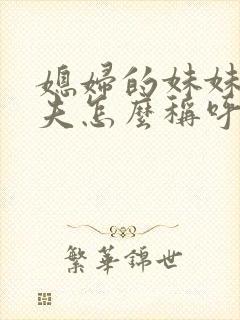 媳婦的妹妹
夫怎麼稱呼
繁華錦世